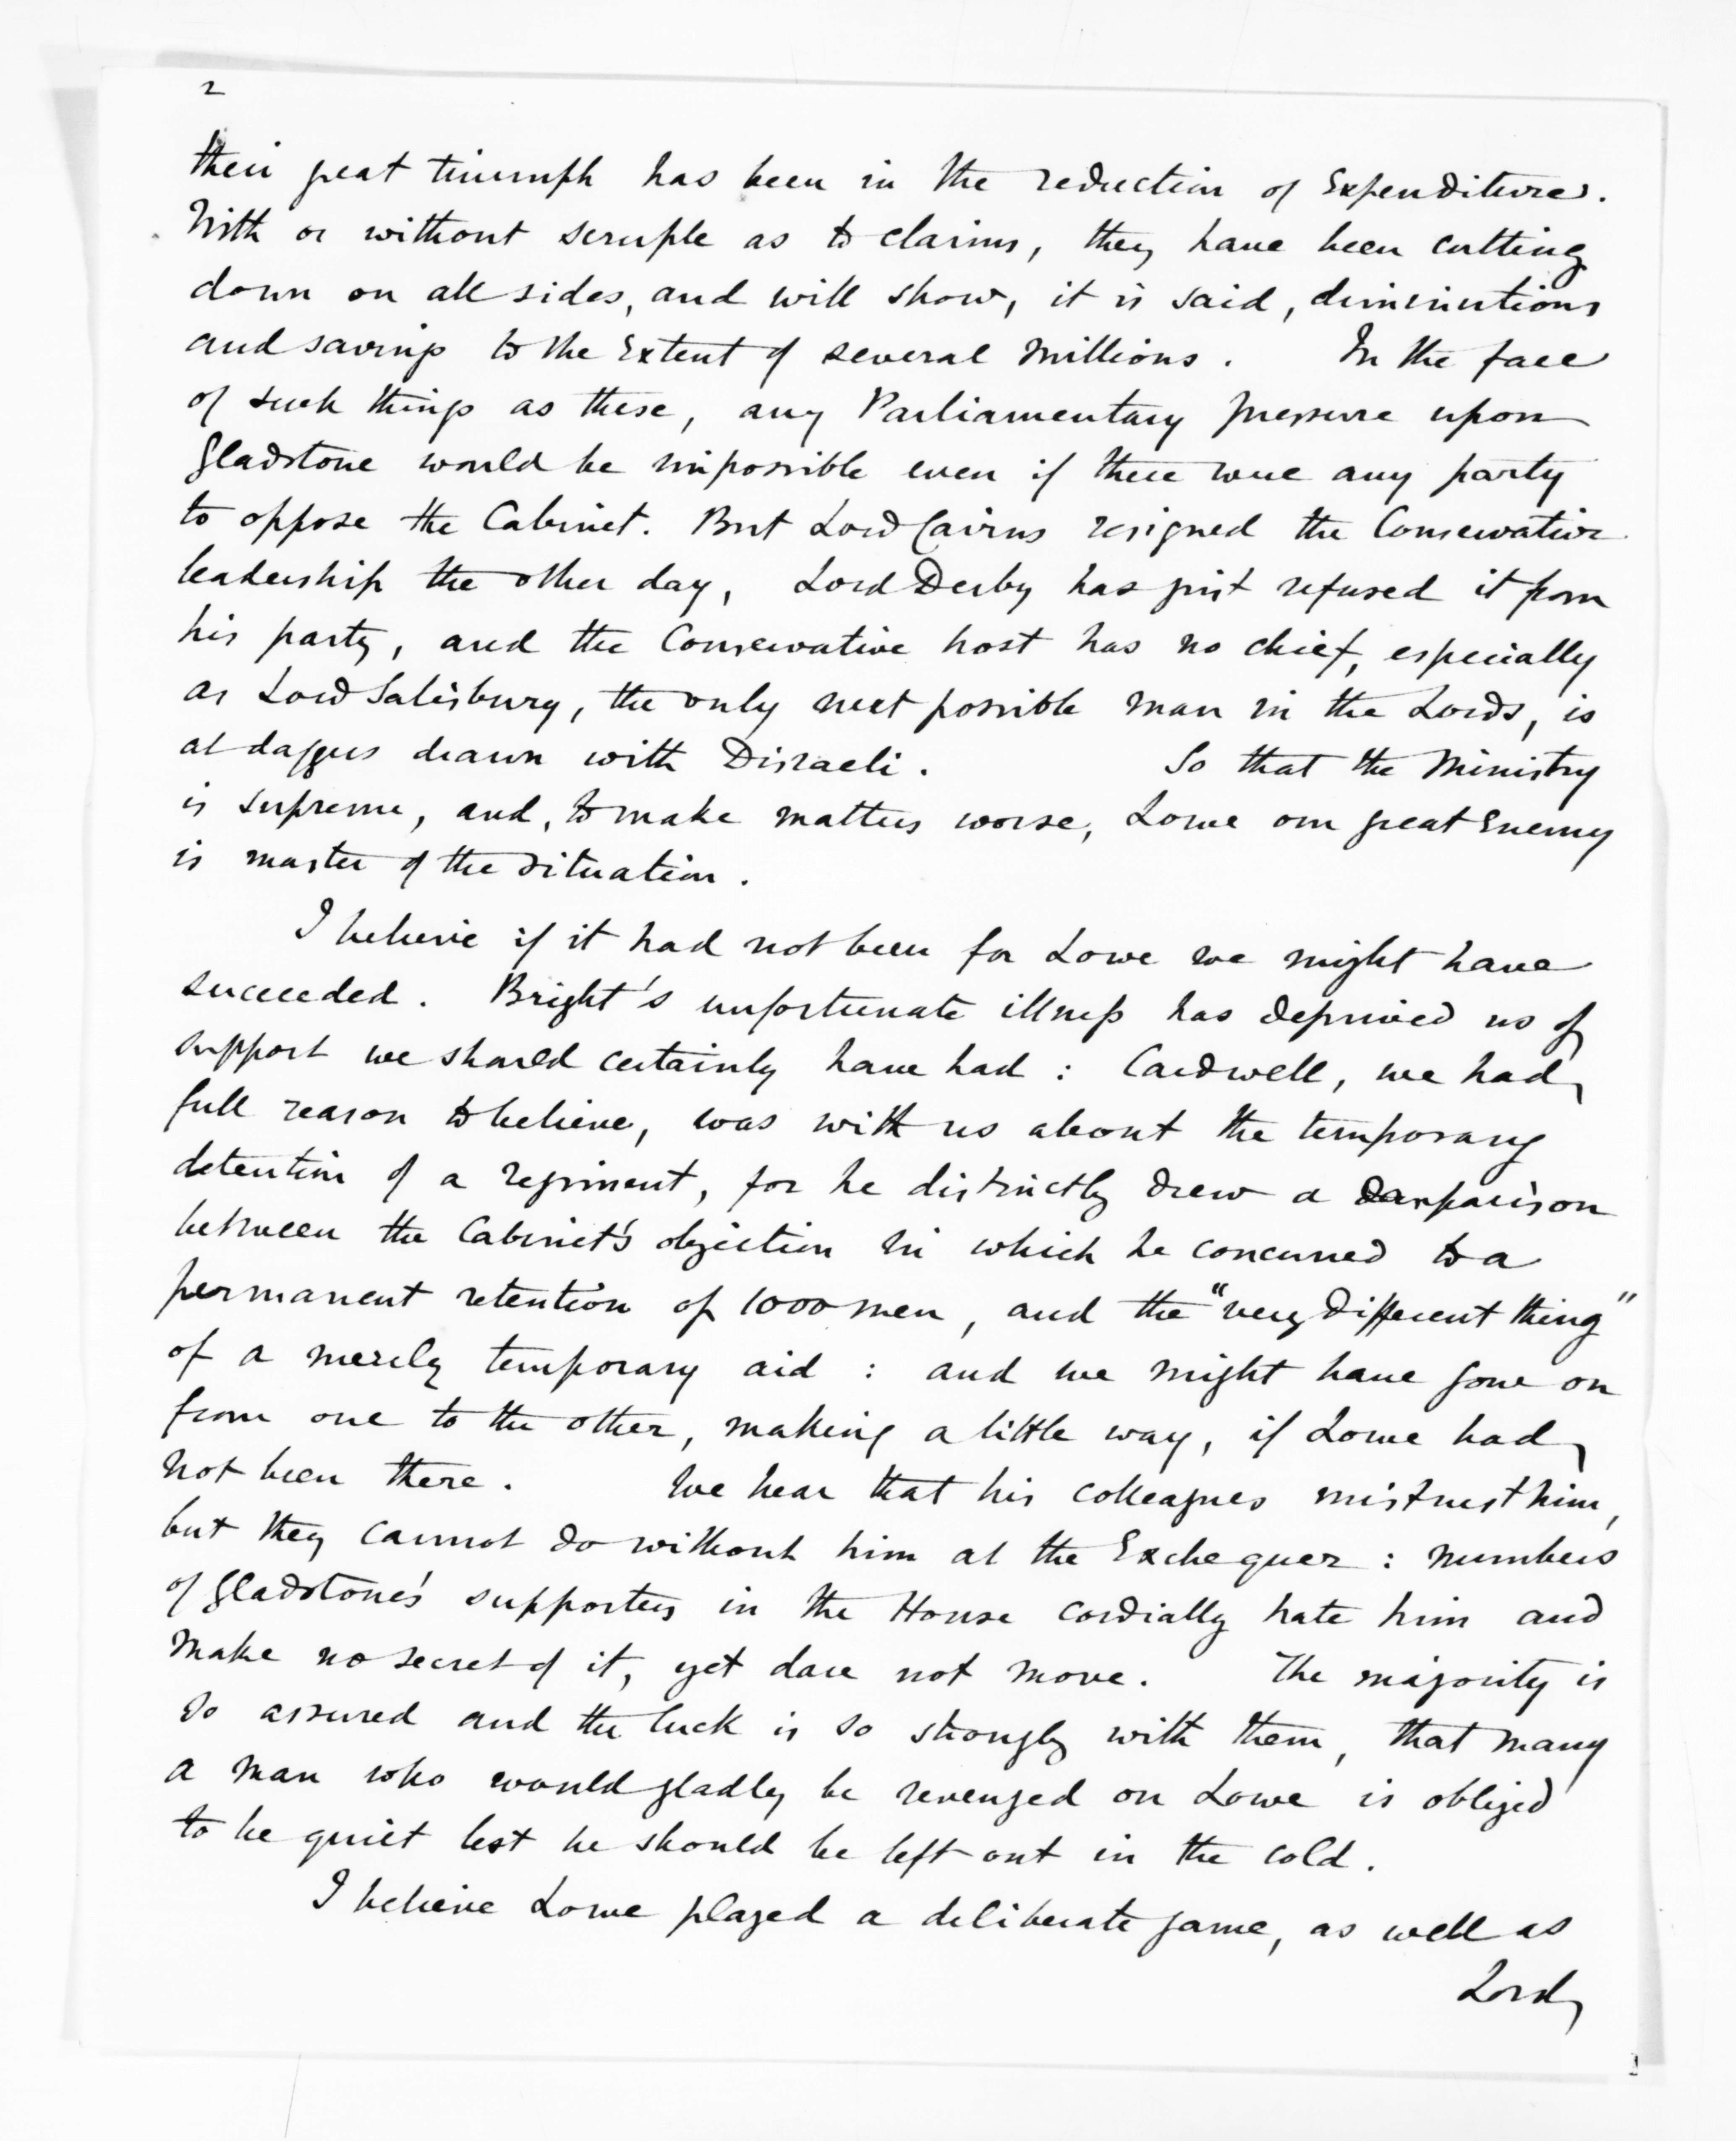 2
their great triumph has been in the reduction of Expenditure.
With or without scruple as to claims, they have been cutting
down on all sides, and will show, it is said, diminutions
and savings to the Extent of several millions. In the face
of such things as these, any Parliamentary pressure upon
Gladstone would be impossible even if there were any party
to oppose the Cabinet. But Lord Cairns resigned the Conservative
leadership the other day, Lord Derby has just refused it from
his party, and the Conservative host has no chief, especially
as Lord Salisbury, the only next possible man in the Lords, is
at daggers drawn with Disraeli. So that the Ministry
is supreme, and, to make matters worse, Lowe our great Enemy
is master of the situation.
I believe if it had not been for Lowe we might have
succeeded. Bright's unfortunate illness has deprived us of
support we should certainly have had : Cardwell, we had
full reason to believe, was with us about the temporary
detention of a regiment, for he distinctly drew a comparison
between the Cabinet's objection in which he concurred to a
permanent retention of 1000 men, and the "very different thing"
of a merely temporary aid : and we might have gone on
from one to the other, making a little way, if Lowe had
not been there. We hear that his colleagues mistrust him,
but they cannot do without him at the Exchequer : numbers
of Gladstone's supporters in the House cordially hate him and
make no secret of it, yet dare not move. The majority is
so assured and the luck is so strongly with them, that many
a man who would gladly be revenged on Lowe is obliged
to be quiet lest he should be left out in the cold.
I believe Lowe played a deliberate game, as well as
Lord